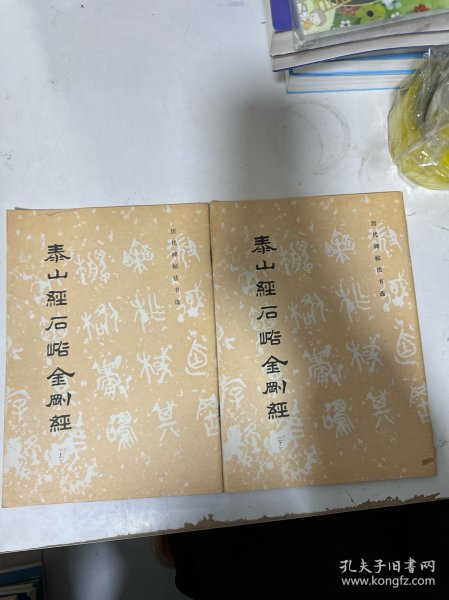 历代碑帖法书选
泰山經石峪金剛經
（上）
历代碑帖法书选
泰山經石峪金剛經
（下）
孔夫子旧书网
www.kongfz.com